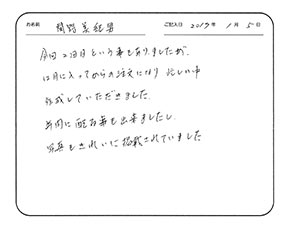 お名前 ご記入日 2017年 1月 5日
今回2回目という事も有りましたが、
12月に入ってからの注文になり 忙しい中
作成していただきました。
年内に配る事も出来ましたし、
写真もきれいに掲載されていました